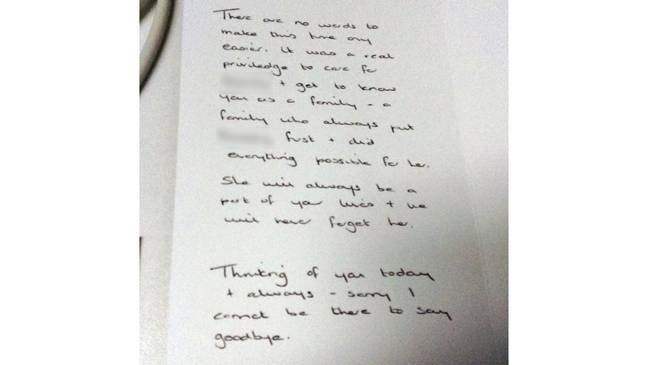 There are no words to
make this time any
easier. It was a real
priviledge to care for
+ get to know
you as a family - a
family who always put
first + did
everything possible for her.
She will always be a
part of your lives + we
will never forget her.
Thinking of you today
+ always - sorry I
cannot be there to say
goodbye.